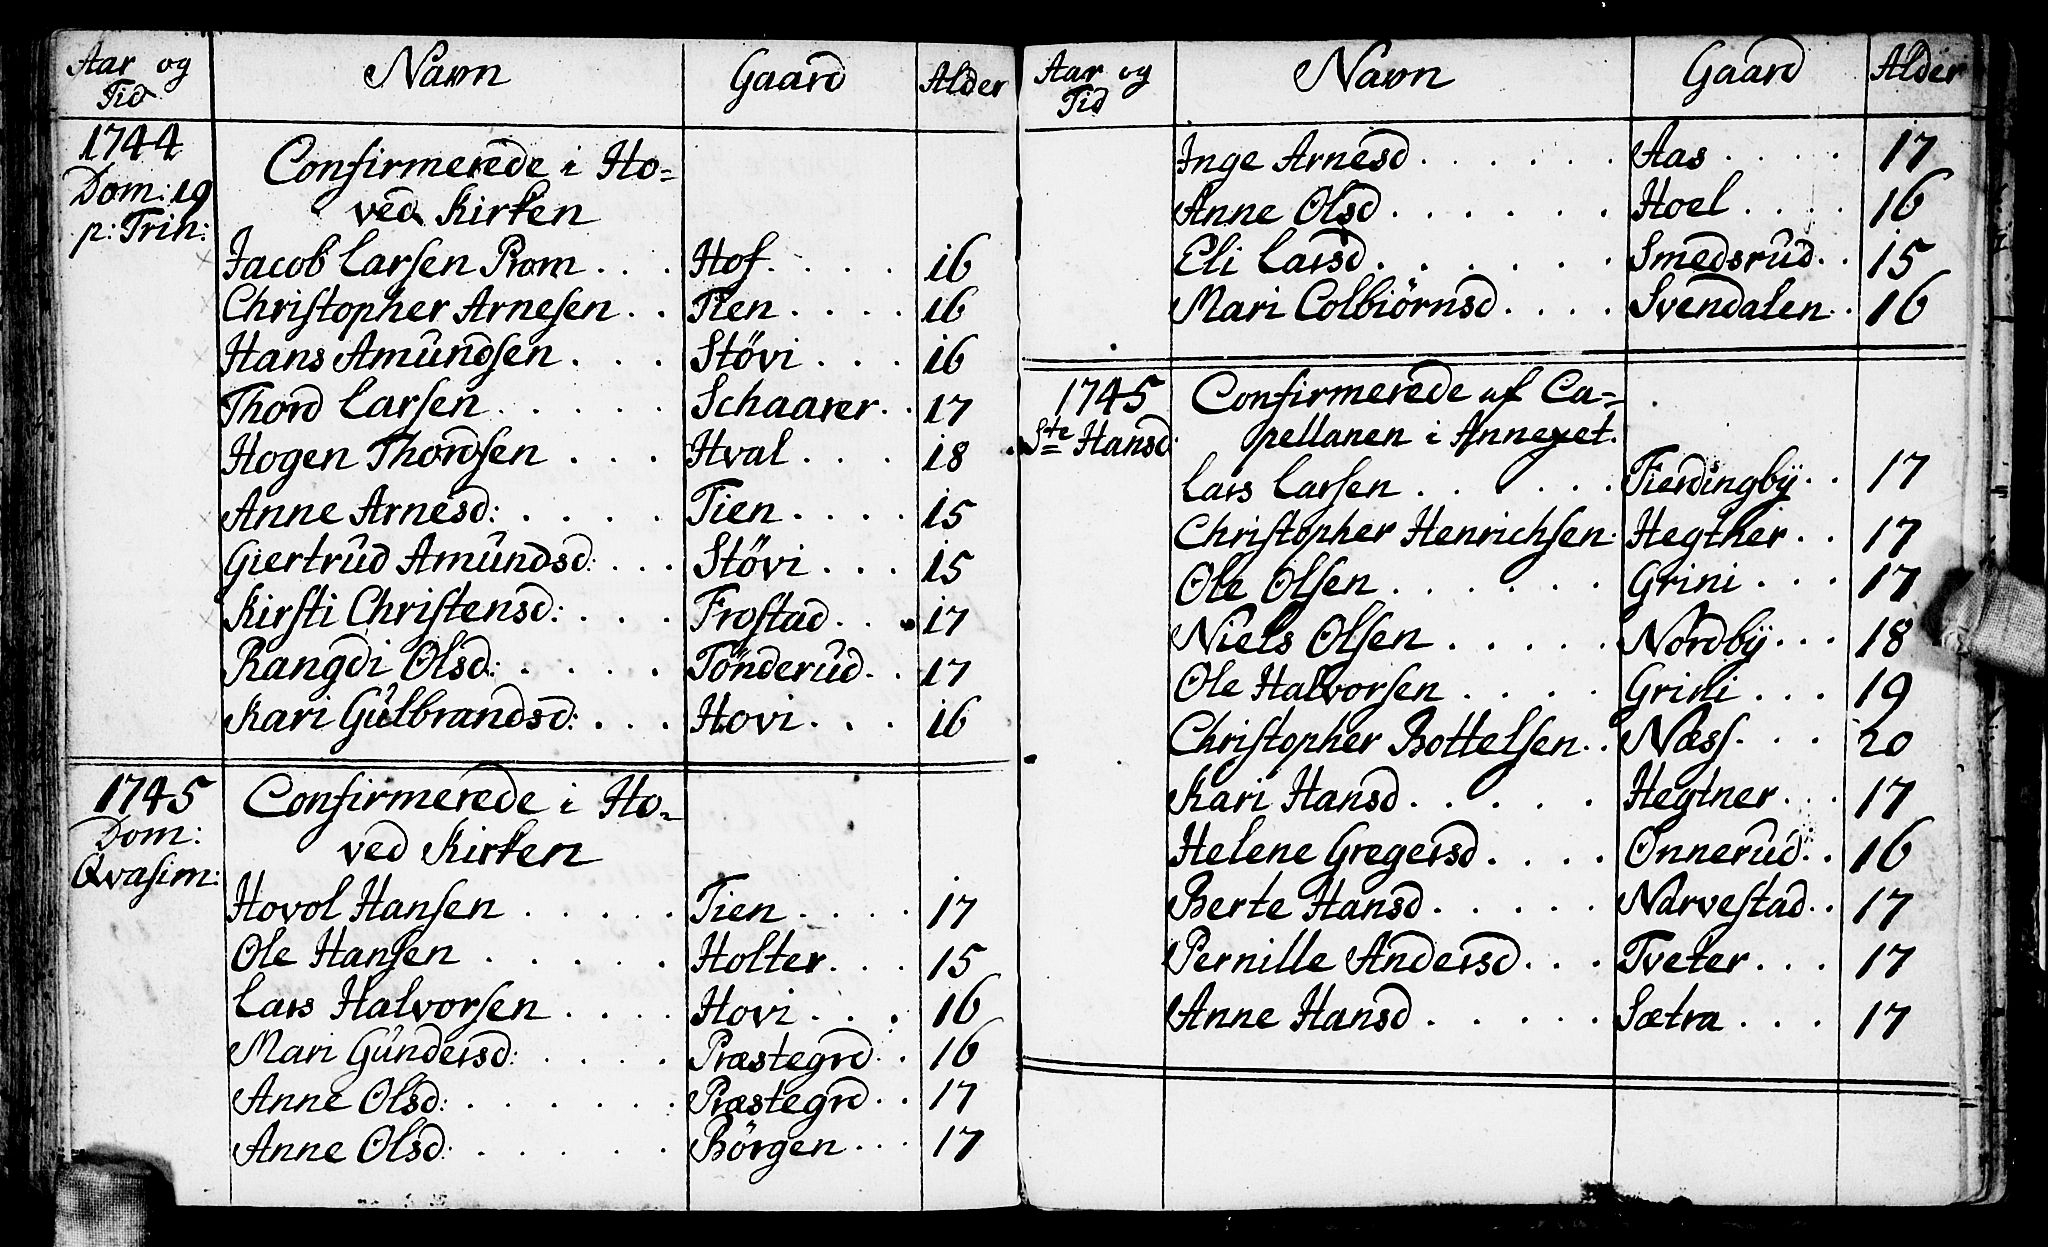 Aar og Tid Navn Gaard Alder
1744 Confirmerede i Ho=
Dom: 19 ved Kirken
p: Trin:
Jacob Larsen Rom . . . Hof. . . . 16
Christopher Arnesen . . Tien . . . . 16
Hans Amundsen . . . Stövi . . . 16
Thord Larsen . . . . . Schaarer . . 17
Hogen Thordsen . . . Hval . . . 18
Anne Arnesd: . . . . Tien . . . . 15
Giertrud Amundsd: . . . Stövi . . . 15
Kirsti Christensd: . . . Frostad . . . 17
Rangdi Olsd: . . . . Tönderud . . 17
Kari Gulbrandsd: . . . Hovi . . . 16
1745 Confirmerede i Ho=
Dom: ved Kirken
Qvasim:
Hovol Hansen . . . . . Tien . . . . 17
Ole Hansen . . . . . Holter . . . 15
Lars Halvorsen . . . . Hovi . . . 16
Mari Gundersd: . . . . Præstegrd . . 16
Anne Olsd: . . . . . . Præstegrd . . 17
Anne Olsd: . . . . . Börgen . . . 17
Aar og Tid Navn Gaard Alder
Inge Arnesd . . . . . . Aas . . . . 17
Anne Olsd . . . . . . Hoel . . . . 16
Eli Larsd . . . . . . Smedsrud . . 15
Mari Colbiörnsd . . . . Svendalen . . 16
1745 Confirmerede af Ca=
Ste Hansd: pellanen i Annexet.
Lars Larsen . . . . . . Fierdingbÿ . . 17
Christopher Henrichsen: Hegtner . . 17
Ole Olsen . . . . . . Grini . . . 17
Niels Olsen . . . . . Nordbÿ . . . 18
Ole Halvorsen . . . . Grini . . . 19
Christopher Bottelsen . . Næss . . . 20
Kari Hansd . . . . . Hegtner . . . 17
Helene Gregersd . . . . Onnerud . . 16
Berte Hansd . . . . . Narvestad . . 17
Pernille Andersd . . . Tveter . . . 17
Anne Hansd . . . . . Sætra . . . 17